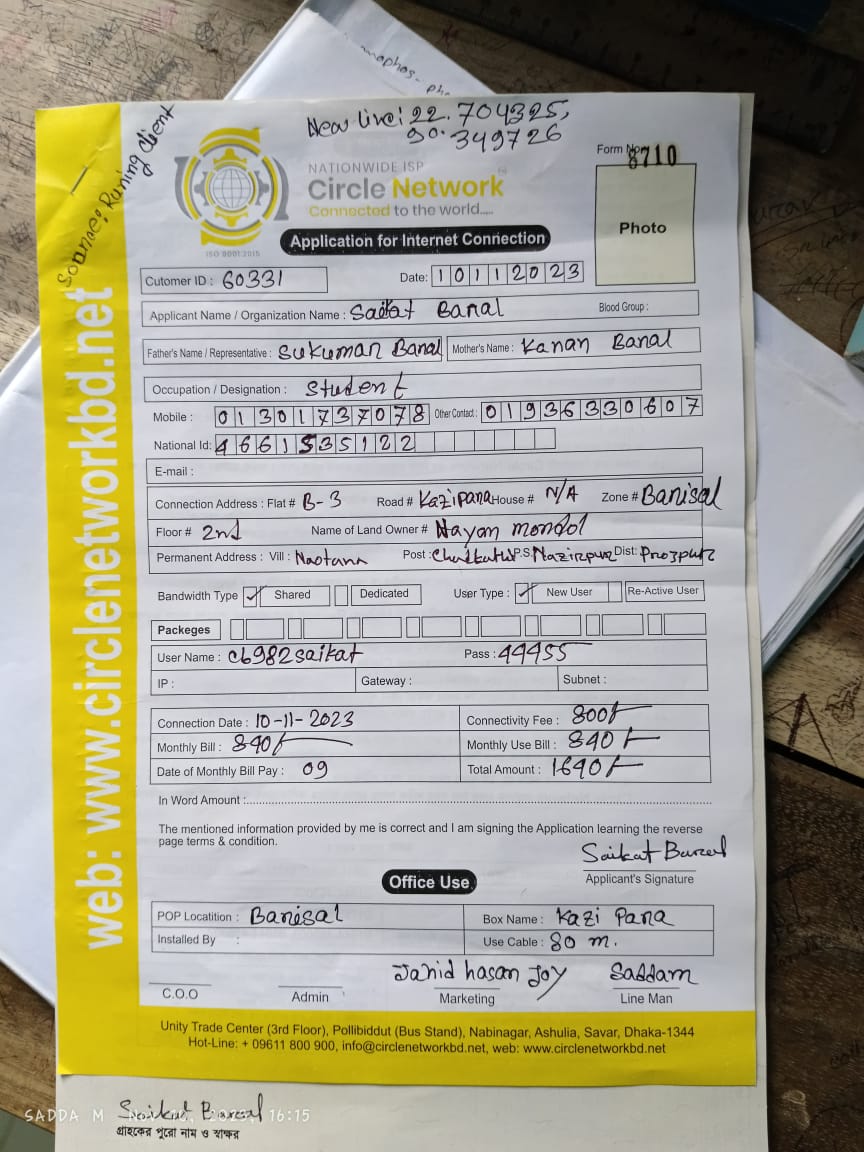 New Live: 22.704325,
90.349726
Source: Runing client
Form No 8710
NATIONWIDE ISP
Circle Network
Connected to the world.....
ISO 9001:2015
Photo
Application for Internet Connection
Cutomer ID : 60331 Date: 10112023
Applicant Name / Organization Name : Saikat Baral Blood Group :
Father's Name / Representative : Sukumar Baral Mother's Name : Kanan Baral
Occupation / Designation : Student
Mobile : 01301737078 Other Contact : 01936330607
National Id: 4661535122
E-mail :
Connection Address : Flat # B-3 Road # Kazipara House # N/A Zone # Barisal
Floor # 2nd Name of Land Owner # Nayan mondol
Permanent Address : Vill : Post : P.S. Nazirpur Dist: Pirozpur
Bandwidth Type ✓ Shared Dedicated User Type : ✓ New User Re-Active User
Packeges
User Name : c6982saikat Pass : 44455
IP : Gateway : Subnet :
Connection Date : 10-11-2023 Connectivity Fee : 800/-
Monthly Bill : 840/- Monthly Use Bill : 840/-
Date of Monthly Bill Pay : 09 Total Amount : 1640/-
In Word Amount :
The mentioned information provided by me is correct and I am signing the Application learning the reverse
page terms & condition.
Saikat Baral
Applicant's Signature
Office Use
POP Locatition : Barisal Box Name : Kazi Para
Installed By : Use Cable : 80 m.
Jahid hasan Joy Saddam
C.O.O Admin Marketing Line Man
Unity Trade Center (3rd Floor), Pollibiddut (Bus Stand), Nabinagar, Ashulia, Savar, Dhaka-1344
Hot-Line: + 09611 800 900, info@circlenetworkbd.net, web: www.circlenetworkbd.net
web: www.circlenetworkbd.net
Saikat Baral
SADDA M 16:15
গ্রাহকের পুরো নাম ও স্বাক্ষর